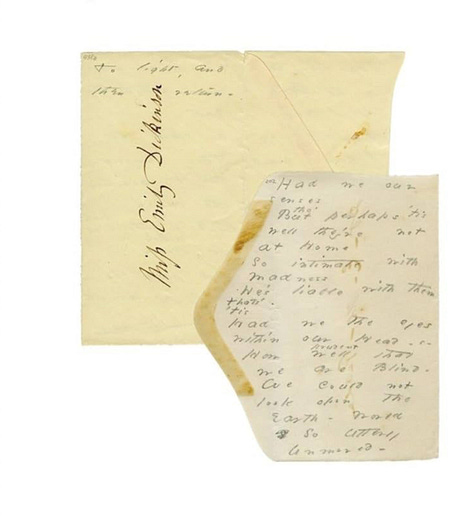 To light, and
then return -
Miss Emily Dickinson
or Had we our
senses
tho'
But perhaps 'tis
well they're not
at Home
So intimate with
Madness
He's liable with them
that's
'tis
Had we the eyes
within our Head -
How well that
we are Blind -
We could not
look upon the
Earth - World
So utterly
Unmoved -